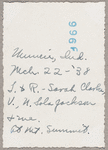 9966
Muncie, Ind.
Mch. 22-'38
L. & R. - Sarah Clarke
V. N. Cola Jackson
& me.
At Mt. Summit.